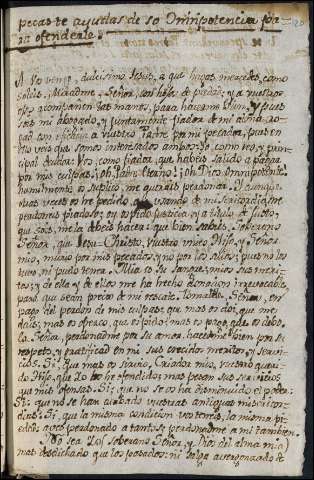 pecas te aquellas de so Omnipotencia por
ra ofenderle.
A Vos vengo, dulcisimo Jesus, a que hagais mercedes, como
soleis. Miradme, Señor, con ojos de piedad; y a vuestros
acompañen las manos, para hacerme bien, y pues
sois mi abogado, y juntamente fiador de mi alma, ro
gad con eficacia a vuestro Padre por mi pecador, pues en
veis que somos interesados ambos: Yo, como reo, y prin
cipal deudor: Vos, como fiador, que habeis salido a pagar
por mis culpas. ¡Oh, Padre Eterno! ¡Oh Dios Omnipotente!
humilmente os suplico, me querais perdonar. Y aunque
otras veces os he pedido, que usando de misericordia me
perdoneis piadoso; oy os pido justicia; y a titulo de justo,
que sois, me la debeis hacer: que bien sabeis, Soberano
Señor, que Jesu-Christo, vuestro unico Hijo, y Señor
mio, murio por mis pecados, y no por los suyos; pues no los
tuvo, ni pudo tener. Mia es su sangre; mios sus meri
tos; y de ella y de ellos me ha hecho donacion irrevocable,
para que sean precio de mi rescate. Tomadla, Señor, en
pago del perdon de mis culpas: que mas os doi, que me
dais; mas os ofrezco, que os pido; mas os pago, que os debo.
Ea, Señor, perdonadme por su amor, hacedme bien por su
respeto, y gratificad en mi sus crecidos meritos, y servi
cios. Si, que mas os sirvio, Criador mio, vuestro queri
do Hijo, que Yo os he ofendido; mas pesan sus servicios,
que mis ofensas. Si; que no se os ha disminuido el poder.
Si: que no se han acabado vuestras antiguas misericor
dias. Si, que la misma condicion os teneis, la misma pie
dad; aveis perdonado a tantos; perdonadme a mi tambien.
No sea Yo, soberano Señor, y Dios del alma mia,
mas desdichado que los pasados: ni salga avergonzado de